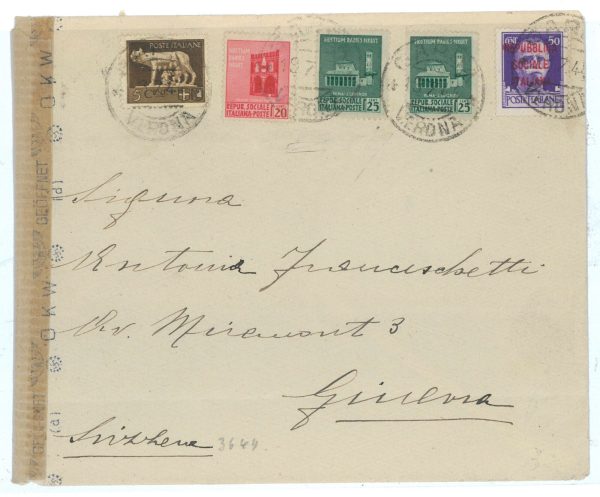 POSTE ITALIANE
5 C
HOSTIUM RABIES DIRUIT
REPUB. SOCIALE
ITALIANA-POSTE 20
HOSTIUM RABIES DIRUIT
REPUB. SOCIALE
ITALIANA-POSTE 25
HOSTIUM RABIES DIRUIT
REPUB. SOCIALE
ITALIANA-POSTE 25
CENT. 50
REPUBBLICA
SOCIALE
ITALIANA
POSTE ITALIANE
VERONA
VERONA
VERONA
Signora
Antonia Franceschetti
Av. Miremont 3
Ginevra
Svizzera 3644
GEÖFFNET
OKW
(d)
GEÖFFNET
OKW
(d)